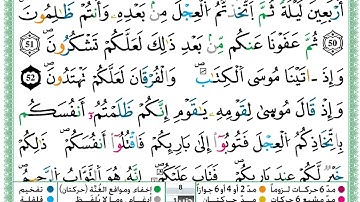 أَرْبَعِينَ لَيْلَةً ثُمَّ ٱتَّخَذْتُمُ ٱلْعِجْلَ مِنۢ بَعْدِهِۦ وَأَنتُمْ ظَٰلِمُونَ
50 ثُمَّ عَفَوْنَا عَنكُم مِّنۢ بَعْدِ ذَٰلِكَ لَعَلَّكُمْ تَشْكُرُونَ 51
وَإِذْ ءَاتَيْنَا مُوسَى ٱلْكِتَٰبَ وَٱلْفُرْقَانَ لَعَلَّكُمْ نَهْتَدُونَ 52
وَإِذْ قَالَ مُوسَىٰ لِقَوْمِهِۦ يَٰقَوْمِ إِنَّكُمْ ظَلَمْتُمْ أَنفُسَكُم
بِٱتِّخَاذِكُمُ ٱلْعِجْلَ فَتُوبُوٓا۟ إِلَىٰ بَارِئِكُمْ فَٱقْتُلُوٓا۟ أَنفُسَكُمْ ذَٰلِكُمْ
خَيْرٌ لَّكُمْ عِندَ بَارِئِكُمْ فَتَابَ عَلَيْكُمْ إِنَّهُۥ هُوَ ٱلتَّوَّابُ ٱلرَّحِيمُ
مدّ 6 حركات لزوماً مدّ 2 أو 4 أو 6 جوازاً 8 إخفاء، ومواقع الغُنَّة (حركتان) تفخيم
مدّ مشبع 6 حركات مدّ حركتان إدغام، وما لا يُلفَظ قلقلة